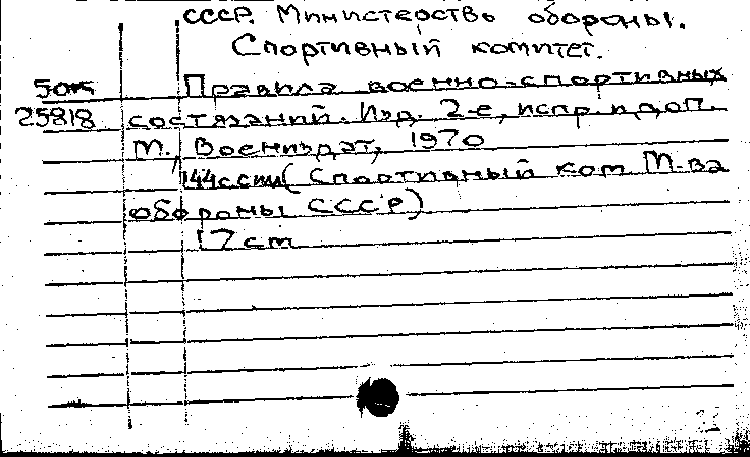 СССР. Министерство обороны.
Спортивный комитет.
Правила военно-спортивных
25818 состязаний. Изд. 2-е, испр. и доп.
М., Воениздат, 1970
144 с. (Спортивный ком М-ва
обороны СССР)
17 cm